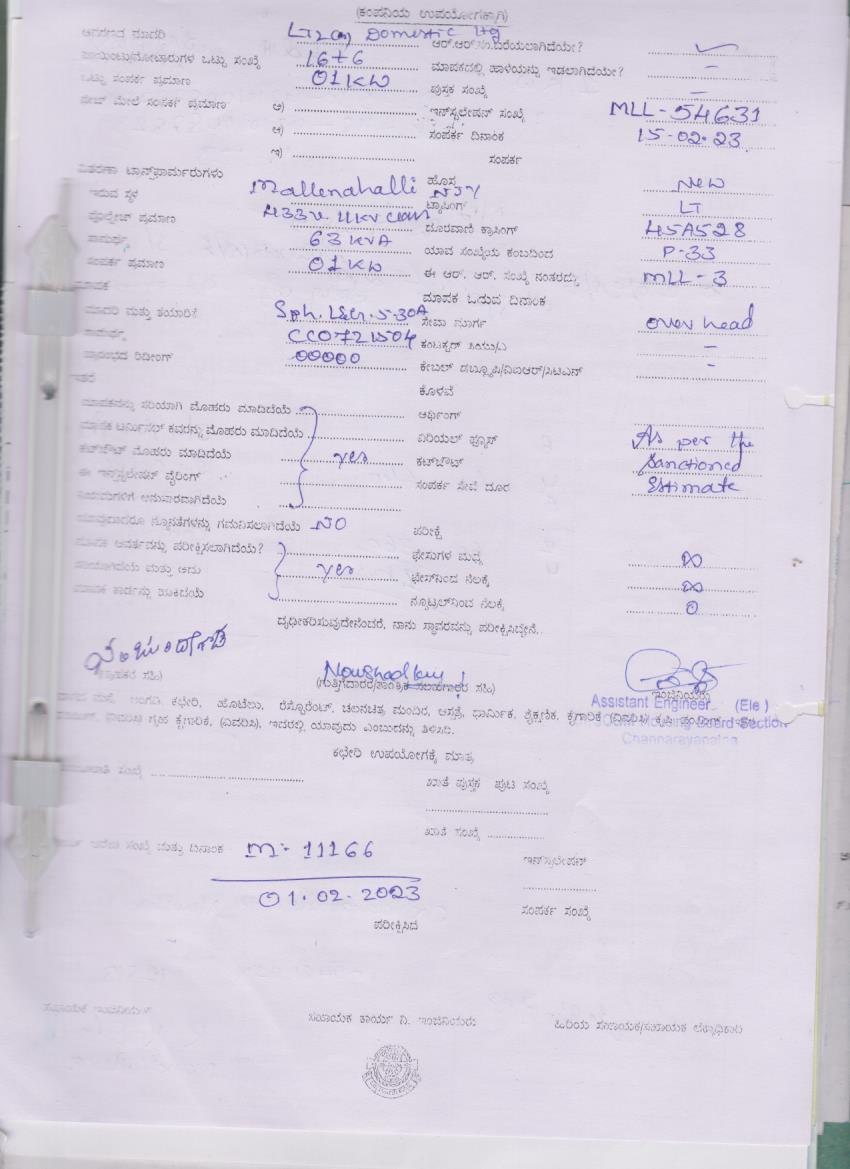 (ಕಂಪನಿಯ ಉಪಯೋಗಕ್ಕಾಗಿ)
LT2(a) Domestic ltg ಆರ್.ಆರ್.ಸಂ.ಬರೆಯಲಾಗಿದೆಯೇ?
ಒಟ್ಟು ಸಂಖ್ಯೆ 16+6 ಮಾಪಕದಲ್ಲಿ ಹಾಳೆಯನ್ನು ಇಡಲಾಗಿದೆಯೇ? –
ಒಟ್ಟು ಸಂಪರ್ಕ ಪ್ರಮಾಣ 01KW ಪುಸ್ತಕ ಸಂಖ್ಯೆ –
ಮೇಲೆ ಸಂಪರ್ಕ ಪ್ರಮಾಣ ಅ) ಇನ್‌ಸ್ಟಲೇಷನ್ ಸಂಖ್ಯೆ MLL-54631
ಆ) ಸಂಪರ್ಕ ದಿನಾಂಕ 15-02-23
ಇ) ಸಂಪರ್ಕ
ವಿತರಣಾ ಟ್ರಾನ್ಸ್‌ಫಾರ್ಮರುಗಳು ಹೊಸ New
ಇರುವ ಸ್ಥಳ Mallenahalli NJY ಟ್ಯಾಪಿಂಗ್ LT
ವೋಲ್ಟೇಜ್ ಪ್ರಮಾಣ 433v 11KV class ದೂರವಾಣಿ ಕ್ರಾಸಿಂಗ್ 45A528
ಸಾಮರ್ಥ್ಯ 63 KVA ಯಾವ ಸಂಖ್ಯೆಯ ಕಂಬದಿಂದ P-33
ಸಂಪರ್ಕ ಪ್ರಮಾಣ 01KW ಈ ಆರ್. ಆರ್. ಸಂಖ್ಯೆ ನಂತರದ್ದು MLL-3
ಮಾಪಕ ಮಾಪಕ ಓದುವ ದಿನಾಂಕ
ಮಾದರಿ ಮತ್ತು ತಯಾರಿಕೆ Sph. L&G. 5-30A ಸೇವಾ ಮಾರ್ಗ over head
ಸಾಮರ್ಥ್ಯ CC0721504 –
ಪ್ರಾರಂಭದ ರಿಡಿಂಗ್ 00000 ಕೇಬಲ್ –
ಇತರೆ ಕೊಳವೆ
ಮಾಪಕವನ್ನು ಸರಿಯಾಗಿ ಮೊಹರು ಮಾಡಿದೆಯೆ ಆರ್ಥಿಂಗ್
ಮಾಪಕ ಟರ್ಮಿನಲ್ ಕವರನ್ನು ಮೊಹರು ಮಾಡಿದೆಯೆ ಏರಿಯಲ್ ಫ್ಯೂಸ್ As per the
ಕಟ್‌ಔಟ್ ಮೊಹರು ಮಾಡಿದೆಯೆ yes ಕಟ್‌ಔಟ್ Sanctioned
ಈ ಇನ್‌ಸ್ಟಲೇಷನ್ ವೈರಿಂಗ್ ಸಂಪರ್ಕ ಸೇವೆ ದೂರ Estimate
ನಿಯಮಗಳಿಗೆ ಅನುಸಾರವಾಗಿದೆಯೆ
ಯಾವುದಾದರೂ ನ್ಯೂನತೆಗಳನ್ನು ಗಮನಿಸಲಾಗಿದೆಯೆ NO ಪರೀಕ್ಷೆ
ಮಾಪಕ ಆವರ್ತವನ್ನು ಪರೀಕ್ಷಿಸಲಾಗಿದೆಯೆ? ಫೇಸುಗಳ ಮಧ್ಯ ∞
ಸರಿಯಾಗಿದೆಯೆ ಮತ್ತು ಅದು yes ಫೇಸ್‌ನಿಂದ ನೆಲಕ್ಕೆ ∞
ಮಾಪಕ ಕಾರ್ಡನ್ನು ನ್ಯೂಟ್ರಲ್‌ನಿಂದ ನೆಲಕ್ಕೆ 0
ದೃಢೀಕರಿಸುವುದೇನೆಂದರೆ, ನಾನು ಸ್ಥಾವರವನ್ನು ಪರೀಕ್ಷಿಸಿದ್ದೇನೆ.
(ಗ್ರಾಹಕರ ಸಹಿ) ಇಂಜಿನಿಯರು
Assistant Engineer (Ele)
ಮನೆ, ಅಂಗಡಿ, ಕಛೇರಿ, ಹೋಟೆಲು, ರೆಸ್ಟೊರೆಂಟ್, ಚಲನಚಿತ್ರ ಮಂದಿರ, ಆಸ್ಪತ್ರೆ, ಧಾರ್ಮಿಕ, ಶೈಕ್ಷಣಿಕ, ಕೈಗಾರಿಕೆ (ವಿವರಿಸಿ)
Section
ಗೃಹ ಕೈಗಾರಿಕೆ, (ವಿವರಿಸಿ), ಇದರಲ್ಲಿ ಯಾವುದು ಎಂಬುದನ್ನು ತಿಳಿಸಿರಿ.
Channarayapatna
ಕಛೇರಿ ಉಪಯೋಗಕ್ಕೆ ಮಾತ್ರ
ಸಂಖ್ಯೆ ಖಾತೆ ಪುಸ್ತಕ ಪುಟ ಸಂಖ್ಯೆ
ಖಾತೆ ಸಂಖ್ಯೆ
ಸಂಖ್ಯೆ ಮತ್ತು ದಿನಾಂಕ M:- 11166 ಇನ್‌ಸ್ಟಲೇಷನ್
01.02.2023 ಸಂಪರ್ಕ ಸಂಖ್ಯೆ
ಪರೀಕ್ಷಿಸಿದ
ಸಹಾಯಕ ಇಂಜಿನಿಯರ್ ಸಹಾಯಕ ಕಾರ್ಯ ನಿ. ಇಂಜಿನಿಯರು ಹಿರಿಯ ಸಹಾಯಕ/ಸಹಾಯಕ ಲೆಕ್ಕಾಧಿಕಾರಿ